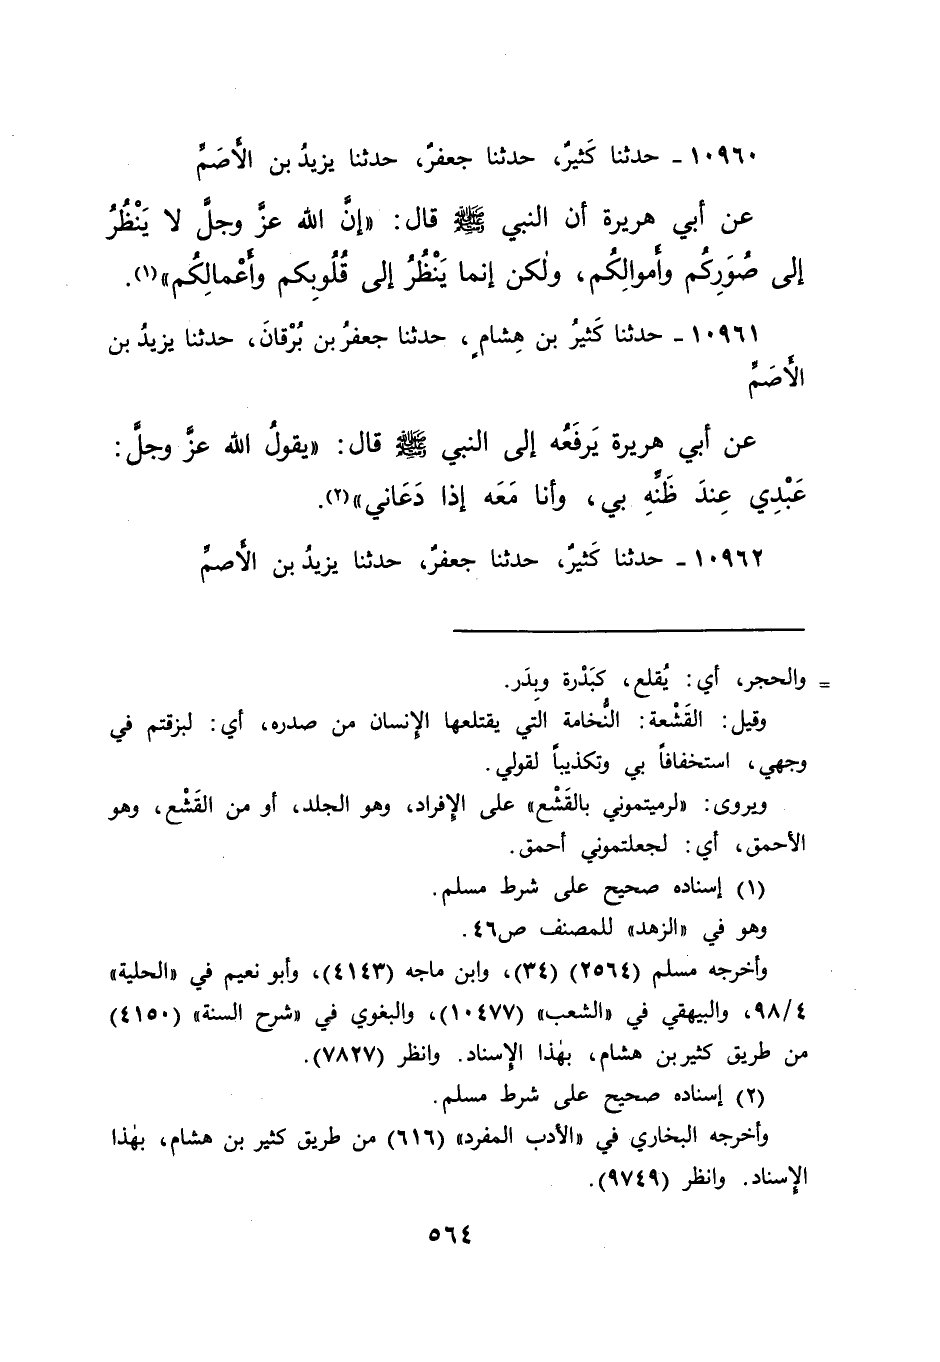 ١٠٩٦٠ ـ حدثنا كَثيرٌ، حدثنا جعفرٌ، حدثنا يزيدُ بن الأَصَمِّ
عن أبي هريرة أن النبي ﷺ قال: «إنَّ الله عزَّ وجلَّ لا يَنْظُرُ
إلى صُوَرِكُم وأَموالِكُم، ولٰكن إنما يَنْظُرُ إلى قُلُوبِكم وأَعْمالِكُم»(١).
١٠٩٦١ ـ حدثنا كَثيرُ بن هِشامٍ، حدثنا جعفرُ بن بُرْقانَ، حدثنا يزيدُ بن
الأَصَمِّ
عن أبي هريرة يَرفَعُه إلى النبي ﷺ قال: «يقولُ الله عزَّ وجلَّ:
عَبْدِي عِندَ ظَنِّه بي، وأنا مَعَه إذا دَعَاني»(٢).
١٠٩٦٢ ـ حدثنا كَثيرٌ، حدثنا جعفرٌ، حدثنا يزيدُ بن الأَصمِّ
= والحجر، أي: يُقلع، كبَدْرة وبِدَر.
وقيل: القَشْعة: النُّخامة التي يقتلعها الإنسان من صدره، أي: لبزقتم في
وجهي، استخفافاً بي وتكذيباً لقولي.
ويروى: «لرميتموني بالقَشْع» على الإفراد، وهو الجلد، أو من القَشْع، وهو
الأحمق، أي: لجعلتموني أحمق.
(١) إسناده صحيح على شرط مسلم.
وهو في «الزهد» للمصنف ص٤٦.
وأخرجه مسلم (٢٥٦٤) (٣٤)، وابن ماجه (٤١٤٣)، وأبو نعيم في «الحلية»
٩٨/٤، والبيهقي في «الشعب» (١٠٤٧٧)، والبغوي في «شرح السنة» (٤١٥٠)
من طريق كثير بن هشام، بهٰذا الإسناد. وانظر (٧٨٢٧).
(٢) إسناده صحيح على شرط مسلم.
وأخرجه البخاري في «الأدب المفرد» (٦١٦) من طريق كثير بن هشام، بهٰذا
الإسناد. وانظر (٩٧٤٩).
٥٦٤